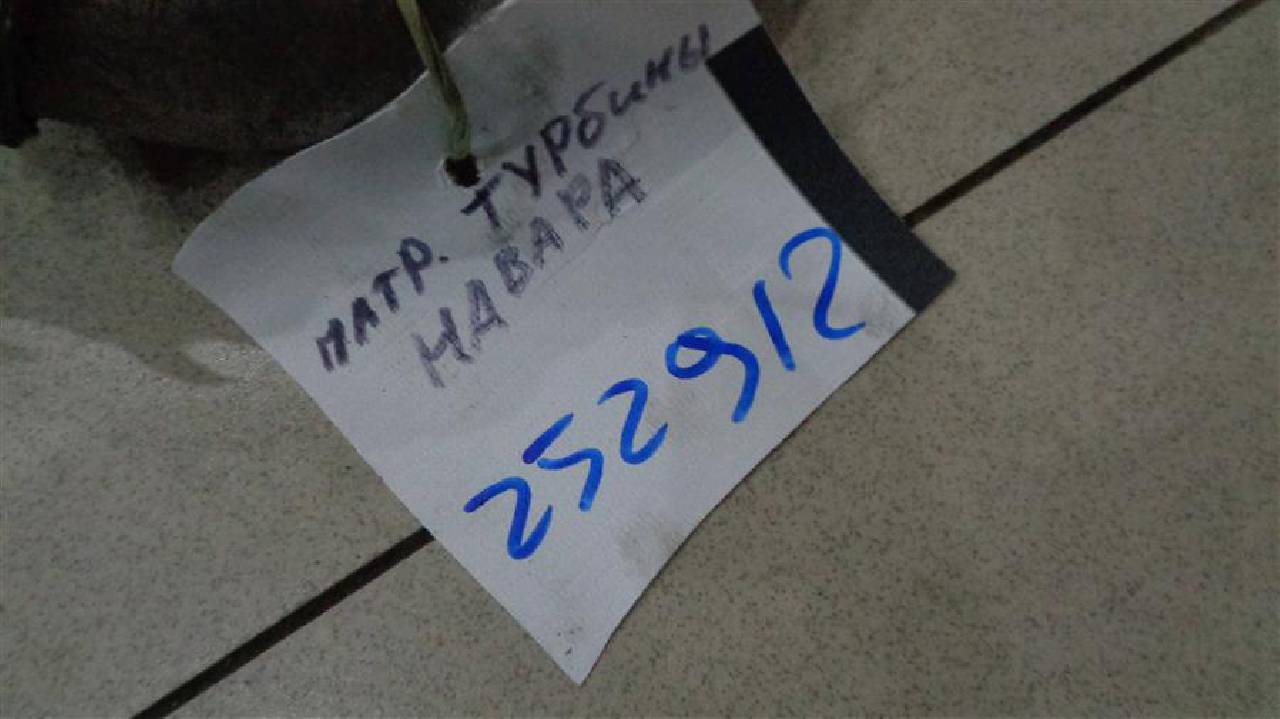 патр. ТУРбины
НАВАРА
252912